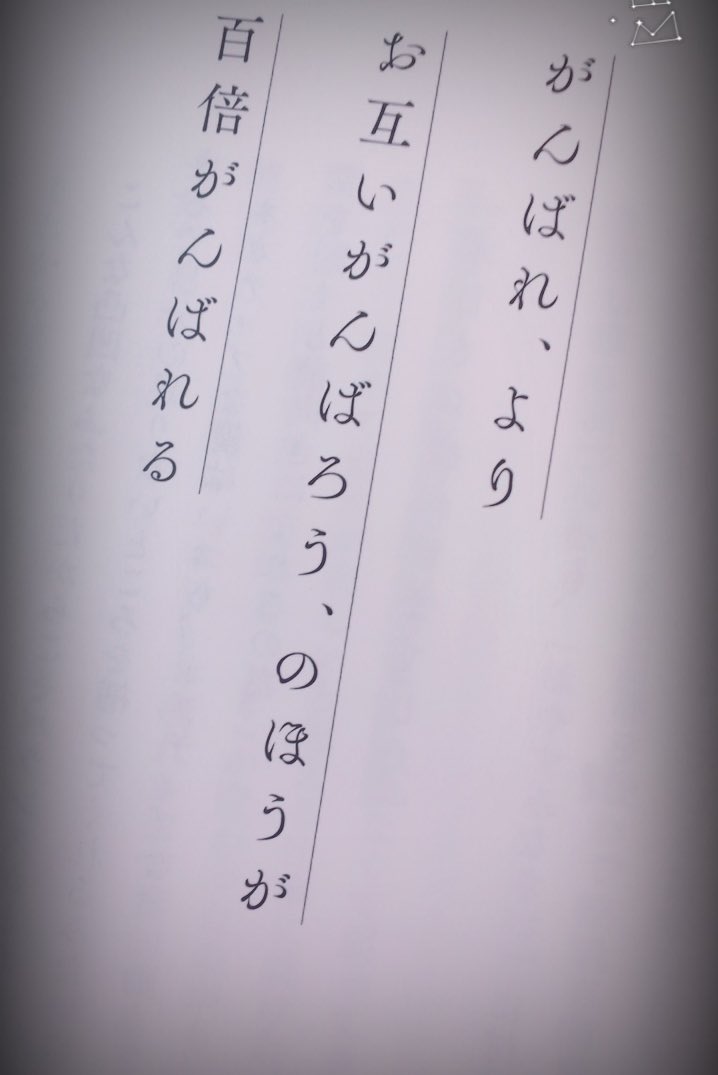 がんばれ、より
お互いがんばろう、のほうが
百倍がんばれる